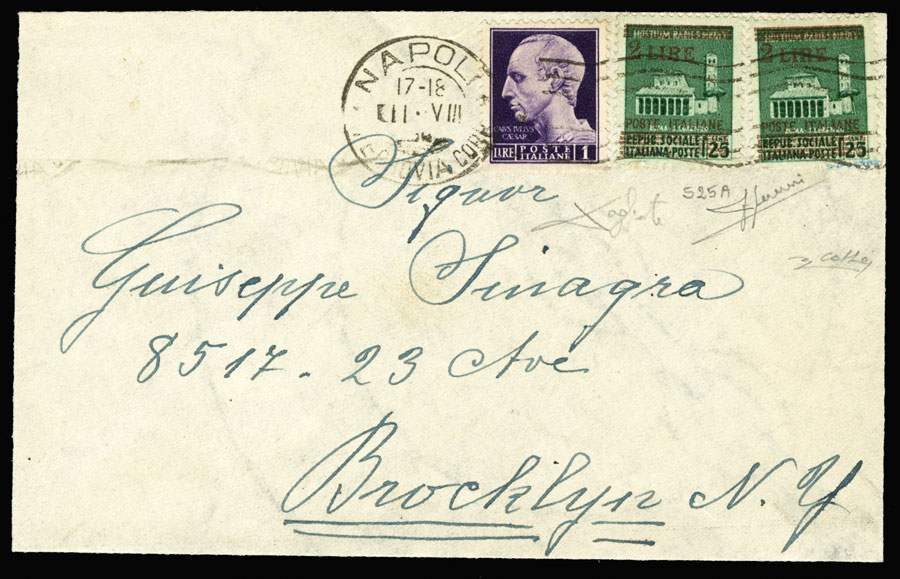 NAPOLI
17-18
VIII
FERROVIA CORR
CAIVS IVLIVS
CAESAR
LIRE POSTE ITALIANE 1
HOSTIUM RABIES DIRUIT
2 LIRE
POSTE ITALIANE
REPUB. SOCIALE
ITALIANA-POSTE 25
HOSTIUM RABIES DIRUIT
2 LIRE
POSTE ITALIANE
REPUB. SOCIALE
ITALIANA-POSTE 25
525A
Signor
Guiseppe Sinagra
8517 - 23 Ave
Brocklyn N. Y